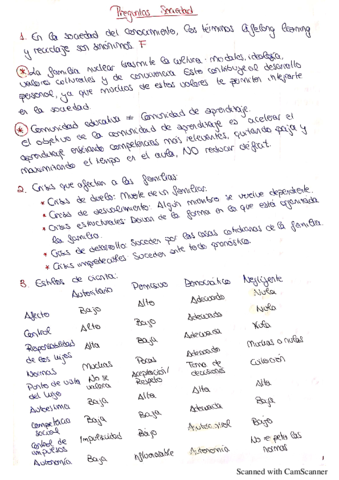 Preguntas Sociedad
1. En la sociedad del conocimiento, los términos lifelong learning
y reciclaje son sinónimos F
La familia nuclear trasmite la cultura: modales, ideología,
valores culturales y de convivencia. Esto contribuye al desarrollo
personal, ya que muchos de estos valores te permiten integrarte
en la sociedad.
Comunidad educativa = Comunidad de aprendizaje.
el objetivo de la comunidad de aprendizaje es acelerar el
aprendizaje enseñando competencias más relevantes, quitando paja y
maximizando el tiempo en el aula, NO reducir déficit.
2. Crisis que afectan a las familias:
* Crisis de duelo: Muerte de un familiar.
* Crisis de desvalimiento: Algún miembro se vuelve dependiente.
* Crisis estructurales: de la forma en la que está organizada
la familia.
* Crisis de desarrollo: Suceden por las cosas cotidianas de la familia.
* Crisis impredecibles: Suceden ante todo pronóstico.
3. Estilos de crianza:
Autoritario Permisivo Democrático Negligente
Afecto Bajo Alto Adecuado Nula
Control Alto Bajo Adecuado Nula
Responsabilidad de los hijos Alta Baja Adecuada Nula
Normas Muchas Pocas Adecuado Muchas o nulas
Punto de vista del hijo No se valora Aceptación/ Respeto Toma de decisiones
Autoestima Baja Alta Alta
Competencia social Baja Alta Adecuada Baja
Control de impulsos Impulsividad Bajo
Autonomía Baja Autonomía No respeta las normas
1
Scanned with CamScanner